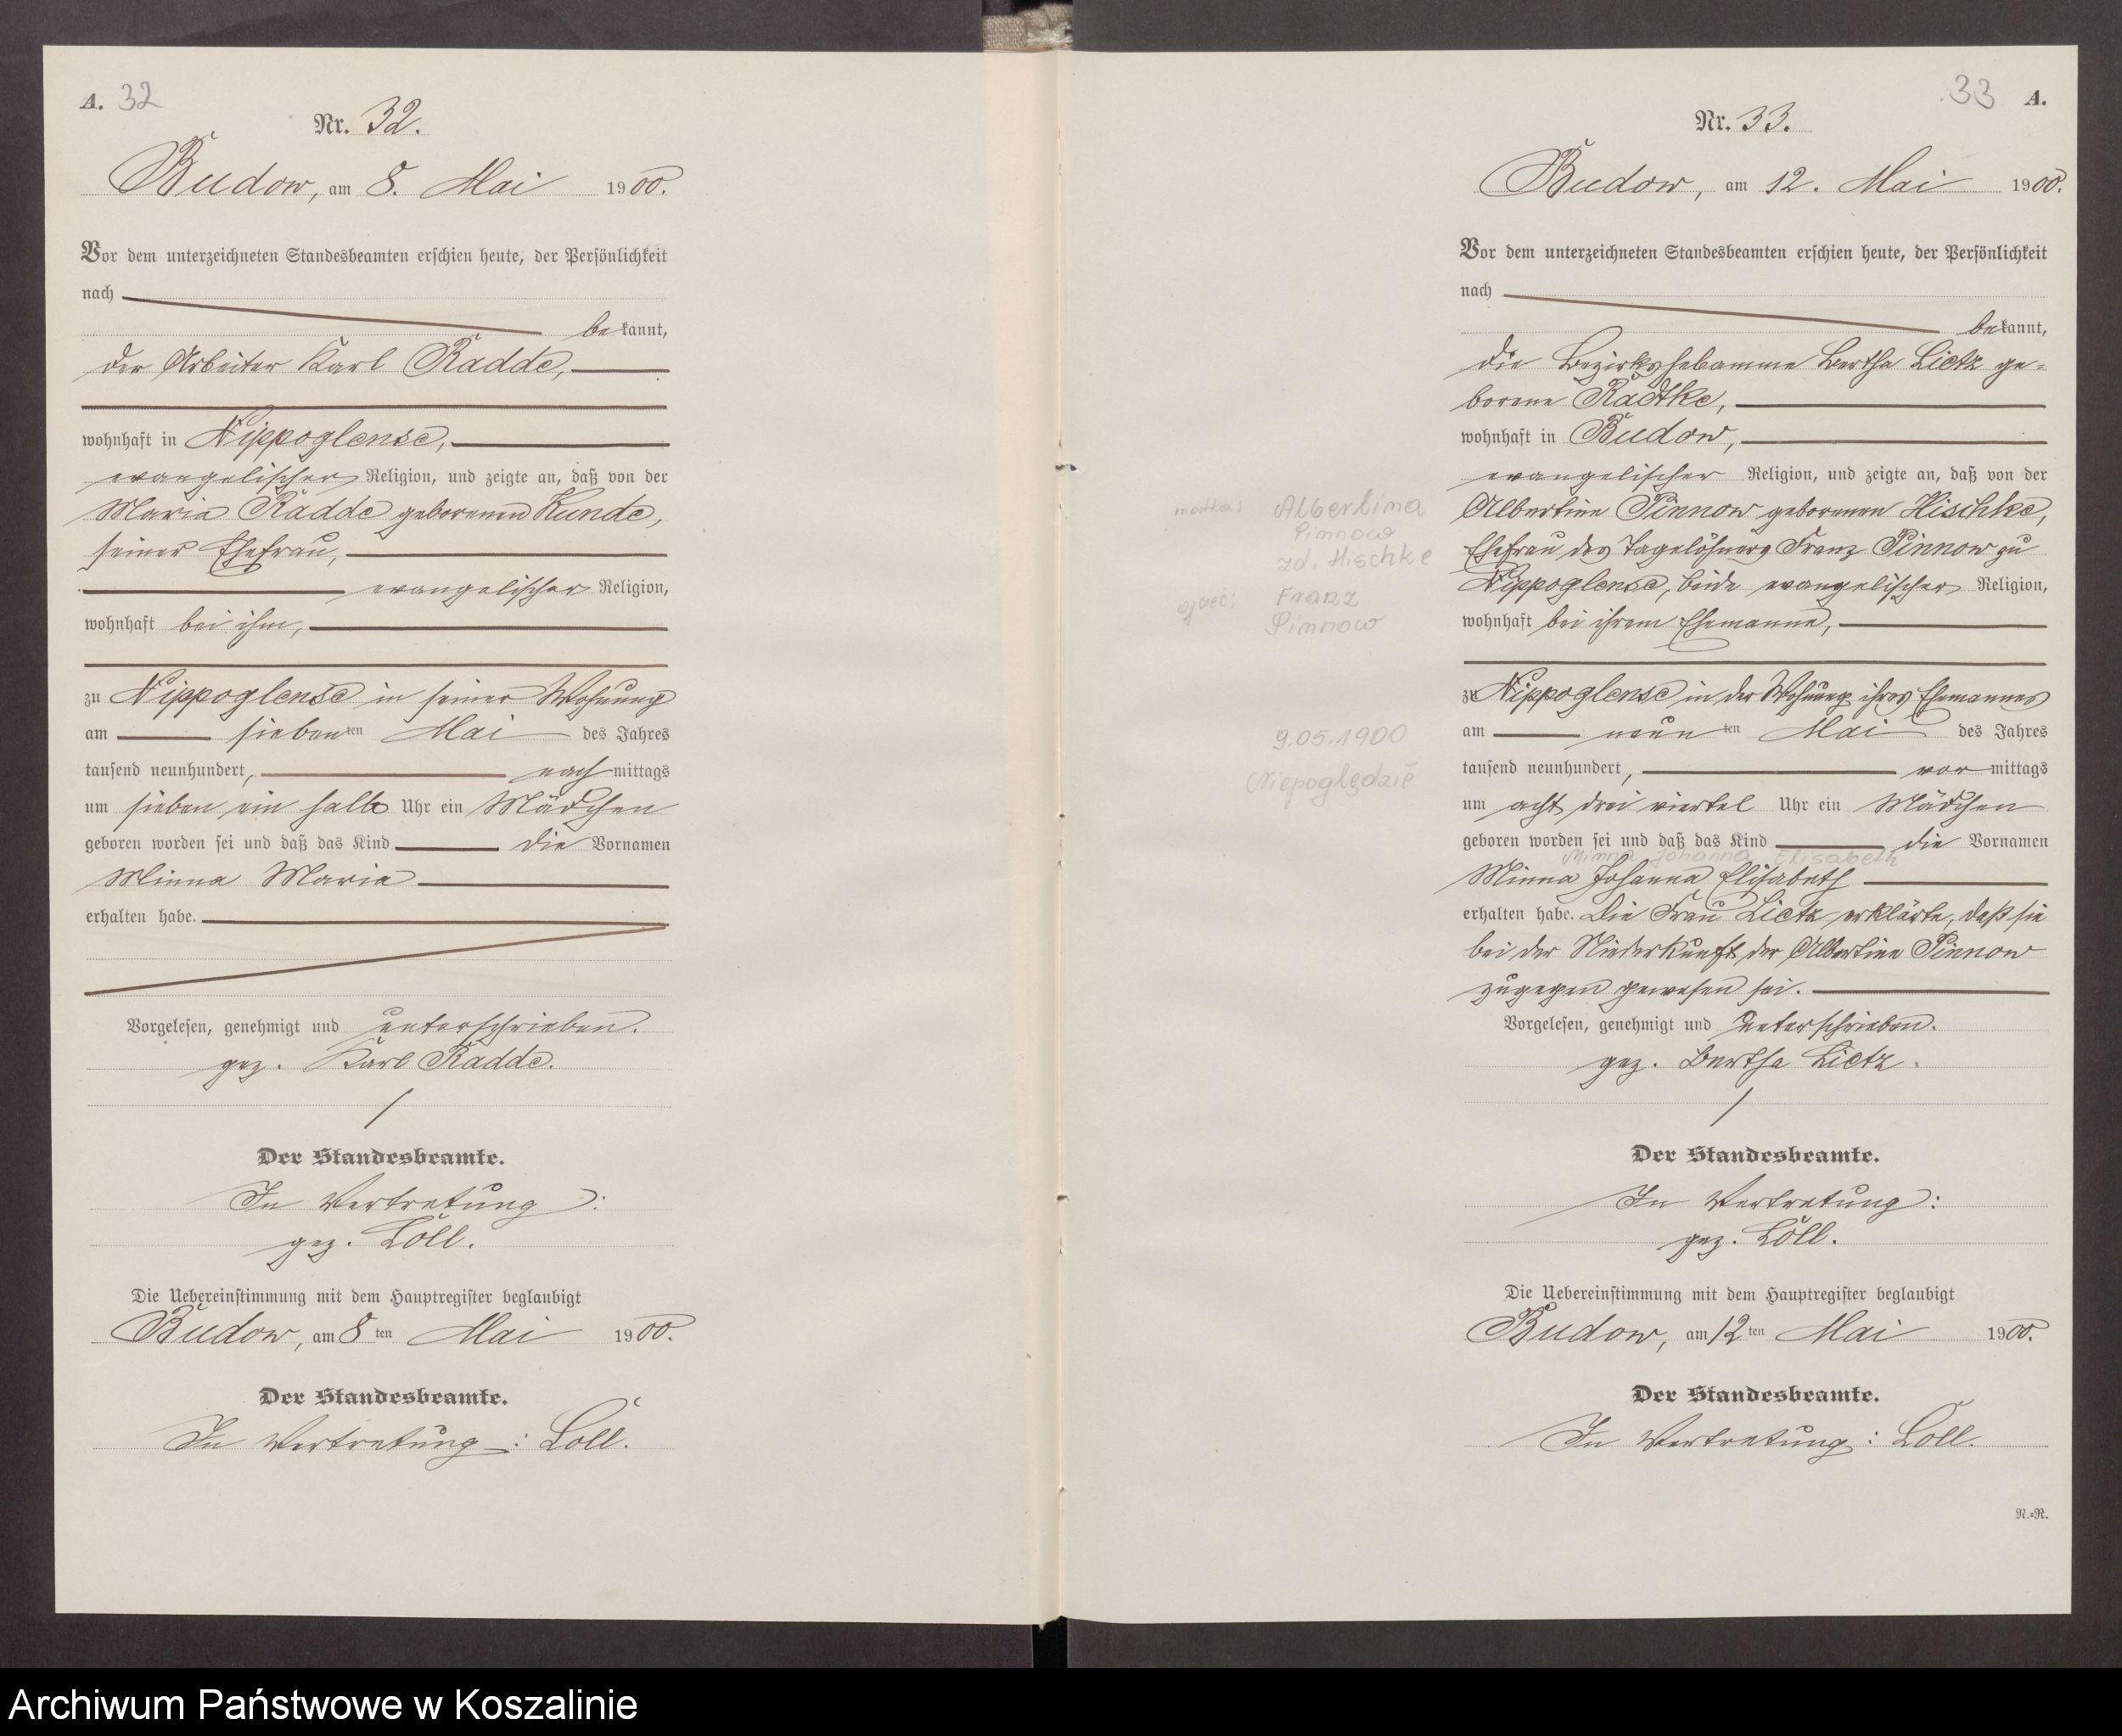 A. 32
Nr. 32.
Budow, am 8. Mai 1900.
Vor dem unterzeichneten Standesbeamten erschien heute, der Persönlichkeit
nach
bekannt,
der Arbeiter Karl Radde,
wohnhaft in Nippoglense,
evangelischer Religion, und zeigte an, daß von der
Maria Radde geborenen Kunde,
seiner Ehefrau,
evangelischer Religion,
wohnhaft bei ihm,
zu Nippoglense in seiner Wohnung
am siebenten Mai des Jahres
tausend neunhundert, nachmittags
um sieben ein halb Uhr ein Mädchen
geboren worden sei und daß das Kind die Vornamen
Minna Maria
erhalten habe.
Vorgelesen, genehmigt und unterschrieben.
gez. Karl Radde.
Der Standesbeamte.
In Vertretung:
gez. Löll.
Die Uebereinstimmung mit dem Hauptregister beglaubigt
Budow, am 8ten Mai 1900.
Der Standesbeamte.
In Vertretung: Löll.
33 A.
Nr. 33.
Budow, am 12. Mai 1900.
Vor dem unterzeichneten Standesbeamten erschien heute, der Persönlichkeit
nach
bekannt,
die Bezirkshebamme Bertha Lietz ge-
borene Radtke,
wohnhaft in Budow,
evangelischer Religion, und zeigte an, daß von der
Albertine Pinnow geborenen Hischke,
Ehefrau des Tagelöhners Franz Pinnow zu
Nippoglense, beide evangelischer Religion,
wohnhaft bei ihrem Ehemanne,
zu Nippoglense in der Wohnung ihres Ehemannes
am neunten Mai des Jahres
tausend neunhundert, vormittags
um acht drei viertel Uhr ein Mädchen
geboren worden sei und daß das Kind die Vornamen
Minna Johanna Elisabeth
Minna Johanna Elisabeth
erhalten habe. Die Frau Lietz erklärte, daß sie
bei der Niederkunft der Albertine Pinnow
zugegen gewesen sei.
Vorgelesen, genehmigt und unterschrieben.
gez. Bertha Lietz.
Der Standesbeamte.
In Vertretung:
gez. Löll.
Die Uebereinstimmung mit dem Hauptregister beglaubigt
Budow, am 12ten Mai 1900.
Der Standesbeamte.
In Vertretung: Löll.
R.=R.
matka: Albertina
Pinnow
zd. Hischke
ojciec: Franz
Pinnow
9.05.1900
Niepoględzie
Archiwum Państwowe w Koszalinie